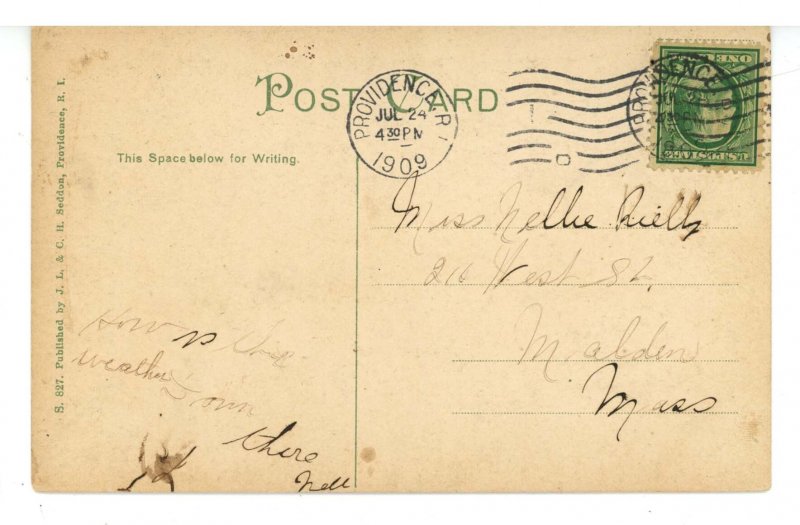 POST CARD
This Space below for Writing.
S. 827. Published by J. L. & C. H. Seddon, Providence, R. I.
PROVIDENCE, R.I.
JUL 24
4 30 PM
1909
PROVIDENCE
ONE
U.S. POSTAGE
Miss Nellie
216 West St.
Malden
Mass
How is this
weather down
there
Nell